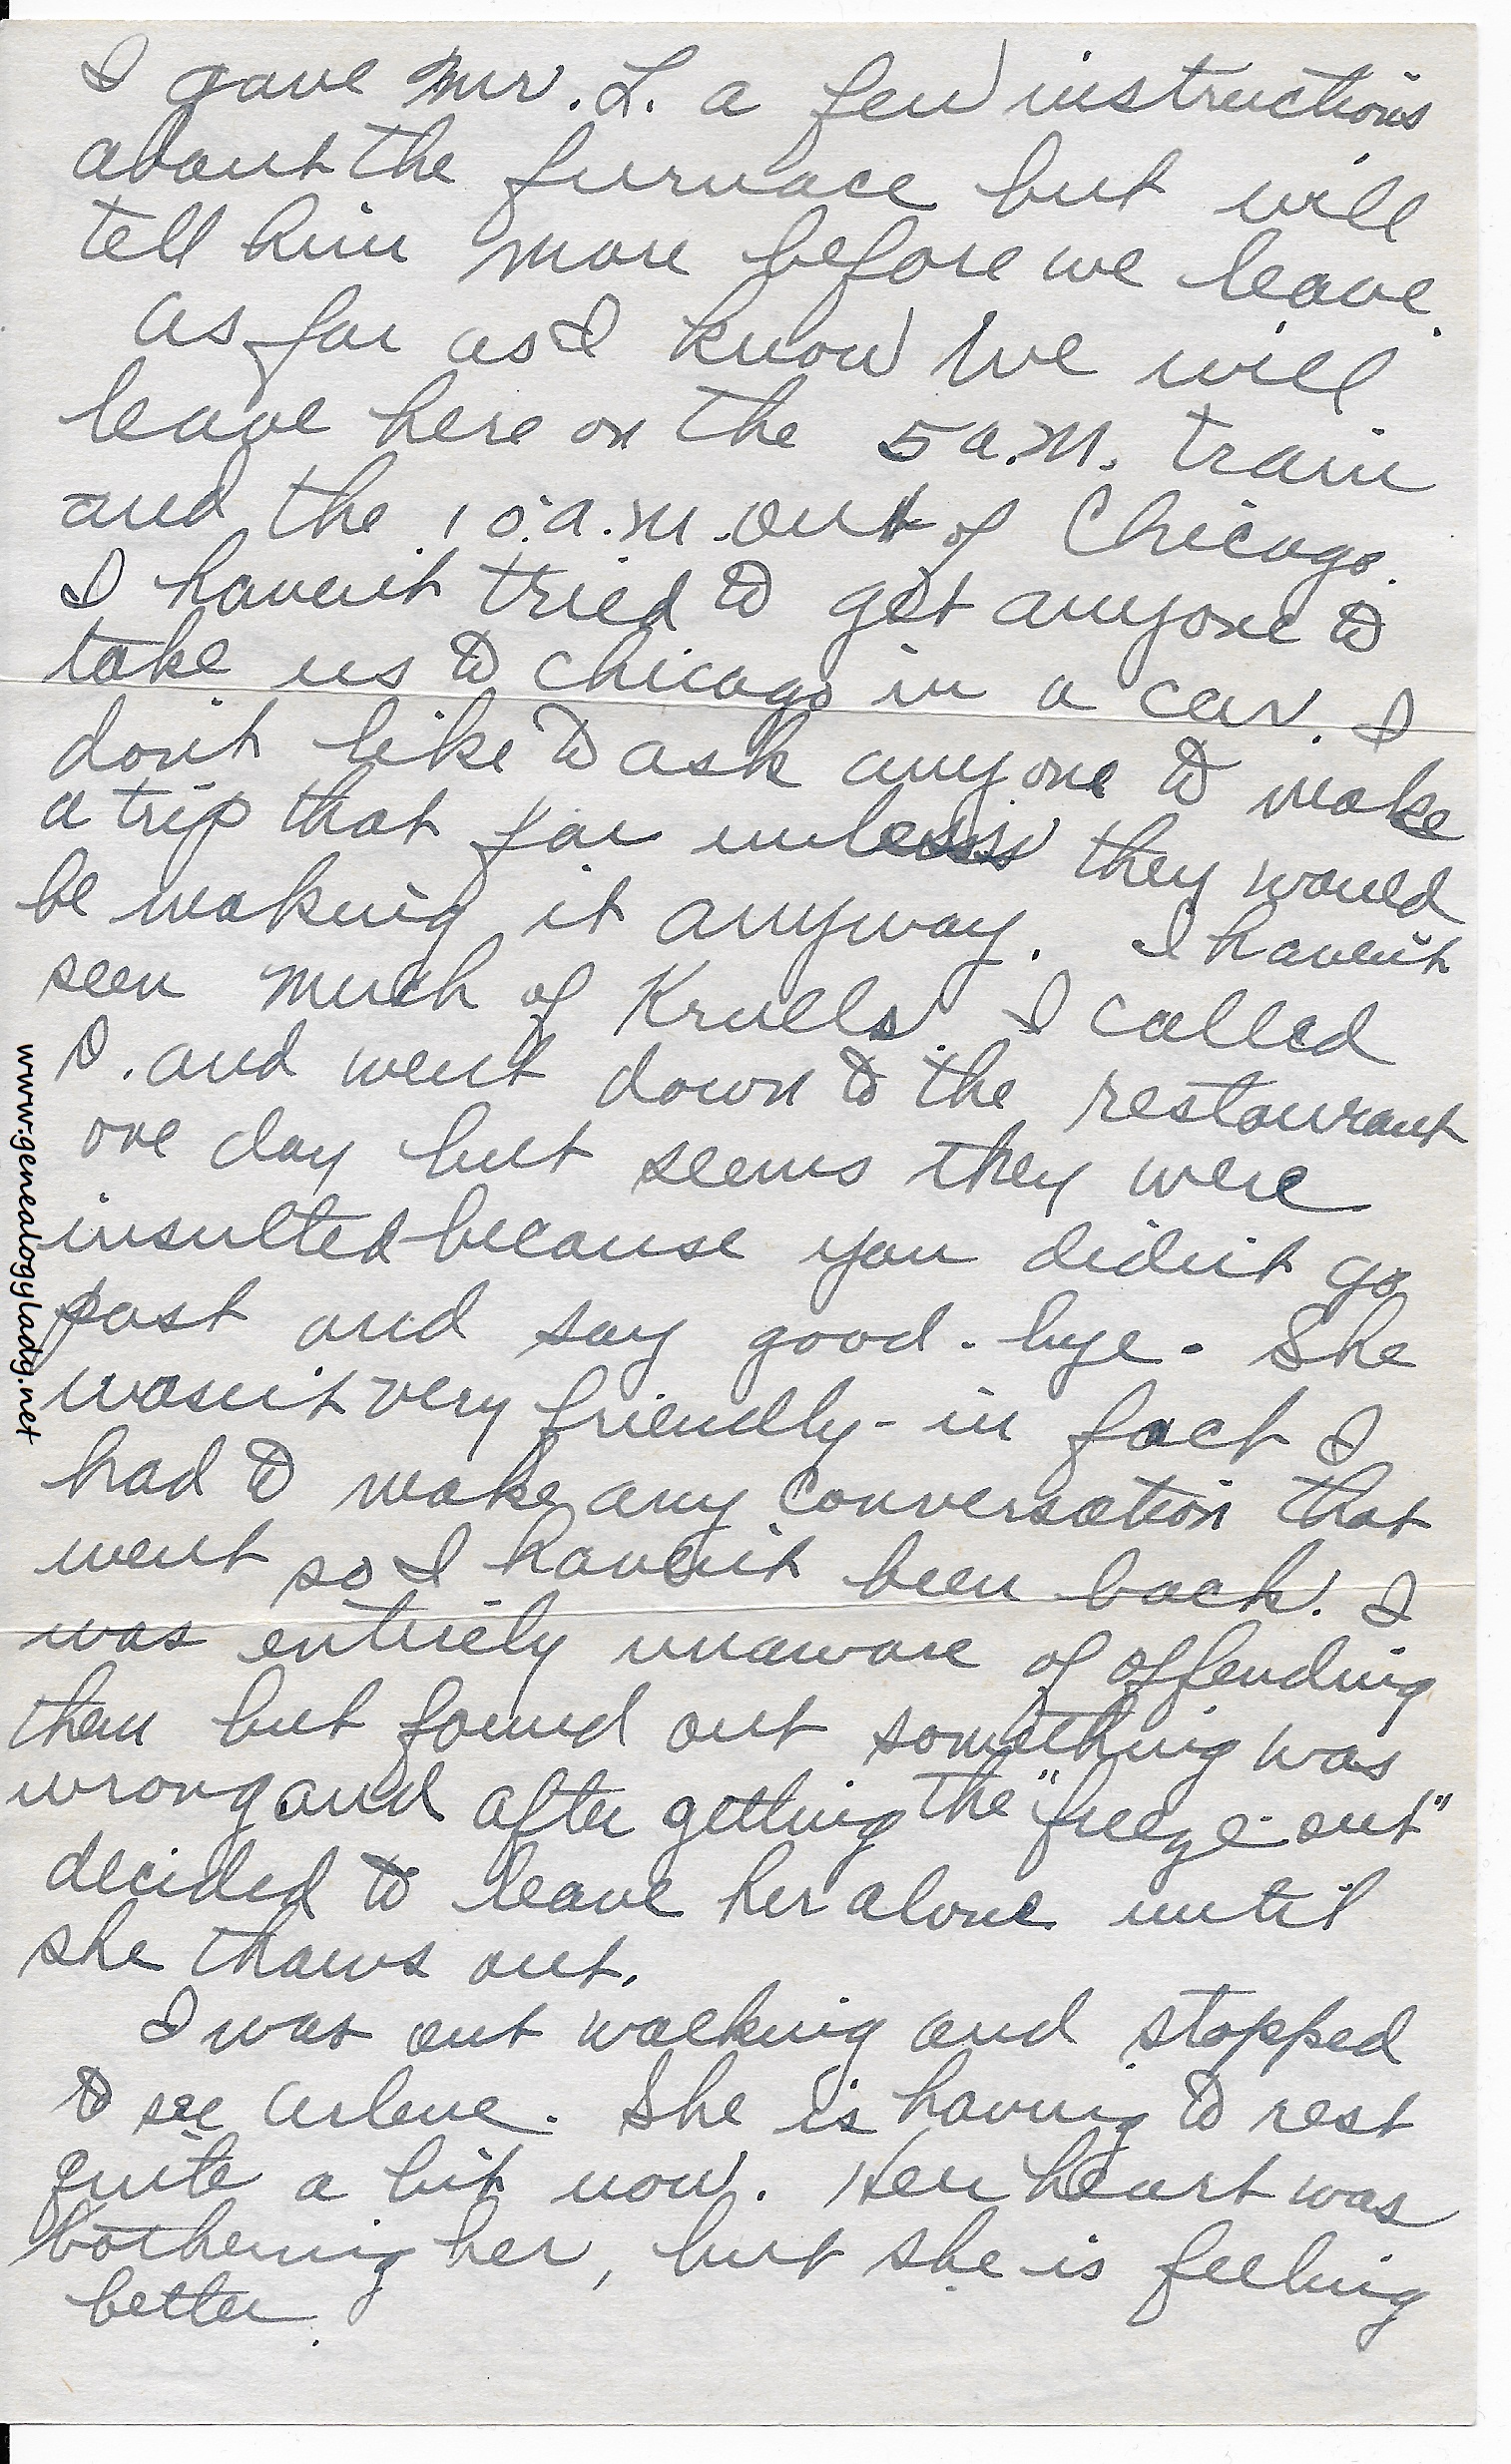 I gave Mr. L. a few instructions
about the furnace but will
tell him more before we leave.
As far as I know we will
leave here on the 5 a.m. train
and the 10 a.m. out of Chicago.
I haven't tried to get anyone to
take us to Chicago in a car. I
don't like to ask anyone to make
a trip that far unless they would
be making it anyway. I haven't
seen much of Krulls. I called
D. and went down to the restaurant
one day but seems they were
insulted because you didn't go
past and say good-bye. She
wasn't very friendly - in fact I
had to make any conversation that
went so I haven't been back. I
was entirely unaware of offending
them but found out something was
wrong and after getting the "freeze-out"
decided to leave her alone until
she thaws out.
I was out walking and stopped
to see Arlene. She is having to rest
quite a bit now. Her heart was
bothering her, but she is feeling
better.
www.genealogylady.net